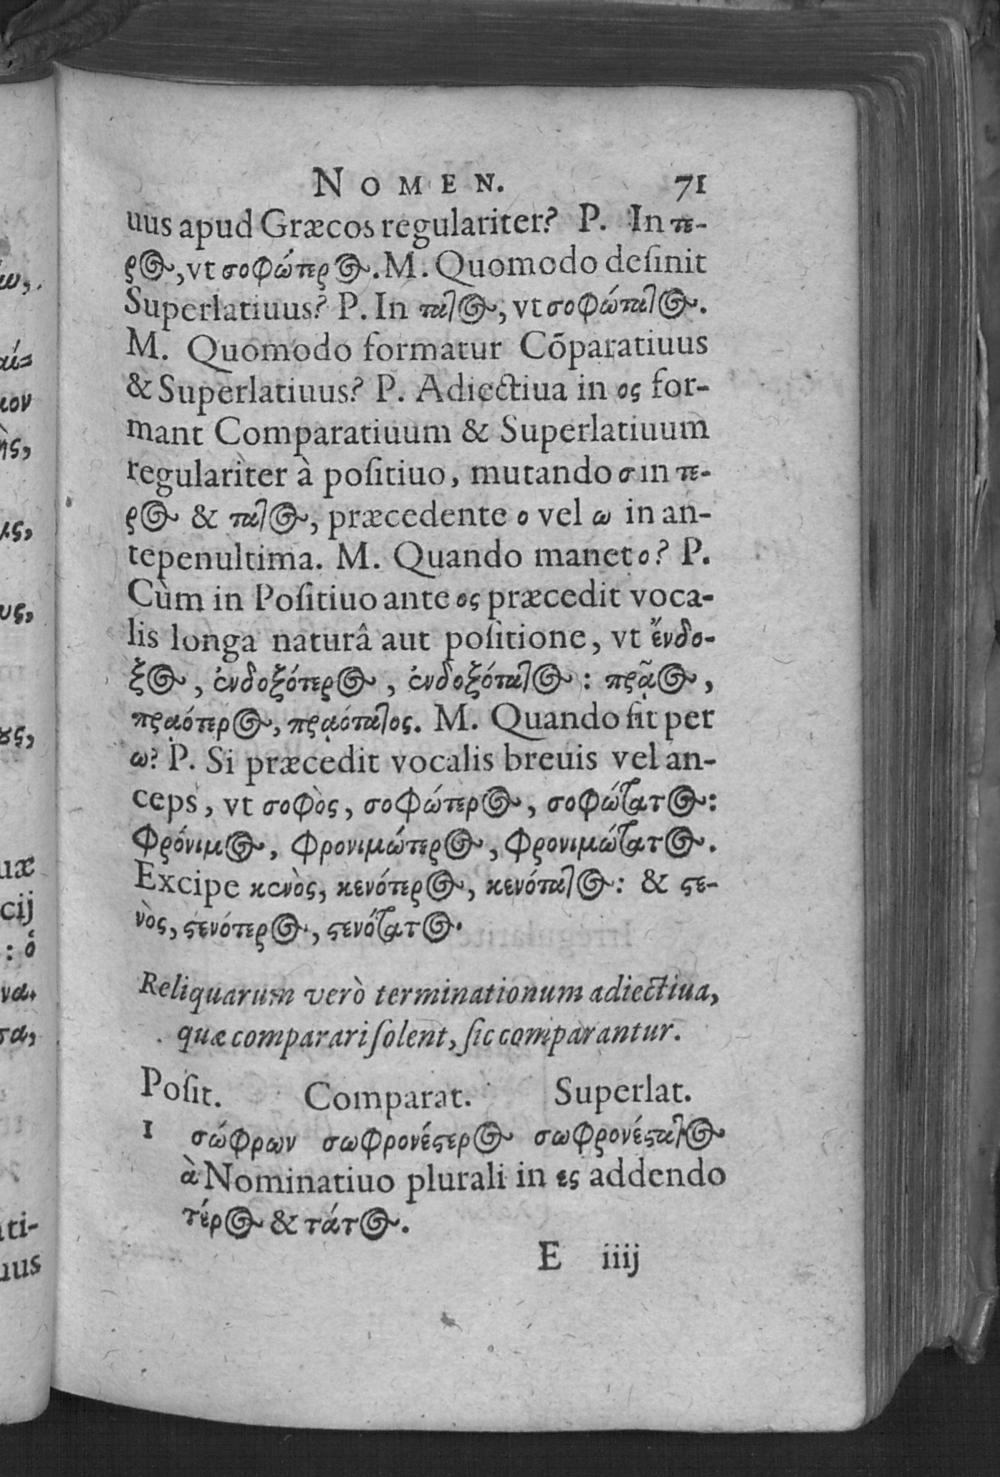 NOMEN. 71
uus apud Græcos regulariter? P. In τε-
ρος, vt σοφώτερος. M. Quomodo desinit
Superlatiuus? P. In τατος, vt σοφώτατος.
M. Quomodo formatur Cõparatiuus
& Superlatiuus? P. Adiectiua in ος for-
mant Comparatiuum & Superlatiuum
regulariter à positiuo, mutando σ in τε-
ρος & τατος, præcedente ο vel ω in an-
tepenultima. M. Quando manet ο? P.
Cùm in Positiuo ante ος præcedit voca-
lis longa naturâ aut positione, vt ἔνδο-
ξος, ἐνδοξότερος, ἐνδοξότατος: πρᾷος,
πρᾳότερος, πρᾳότατος. M. Quando fit per
ω? P. Si præcedit vocalis breuis vel an-
ceps, vt σοφὸς, σοφώτερος, σοφώτατος:
Φρόνιμος, Φρονιμώτερος, Φρονιμώτατος.
Excipe κενὸς, κενότερος, κενότατος: & στε-
νὸς, στενότερος, στενότατος.
Reliquarum verò terminationum adiectiua,
quæ comparari solent, sic comparantur.
Posit. Comparat. Superlat.
1 σώφρων σωφρονέστερος σωφρονέστατος
à Nominatiuo plurali in ες addendo
τέρος & τάτος.
E iiij